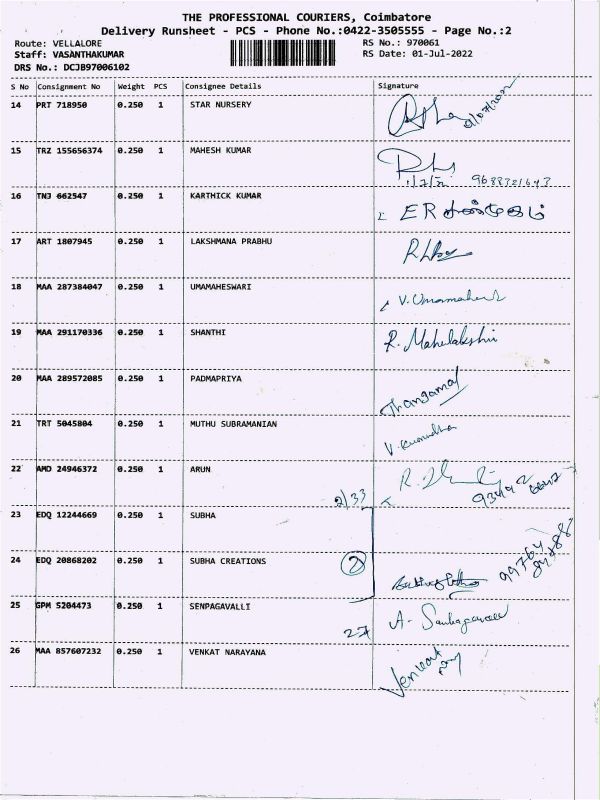 THE PROFESSIONAL COURIERS, Coimbatore
Delivery Runsheet - PCS - Phone No.:0422-3505555 - Page No.:2
Route: VELLALORE RS No.: 970061
Staff: VASANTHAKUMAR RS Date: 01-Jul-2022
DRS No.: DCJB97006102
S No Consignment No Weight PCS Consignee Details Signature
14 PRT 718950 0.250 1 STAR NURSERY
15 TRZ 155656374 0.250 1 MAHESH KUMAR
9688321643
16 TNJ 662547 0.250 1 KARTHICK KUMAR
17 ART 1807945 0.250 1 LAKSHMANA PRABHU
18 MAA 287384047 0.250 1 UMAMAHESWARI
19 MAA 291170336 0.250 1 SHANTHI R. Mahalakshmi
20 MAA 289572085 0.250 1 PADMAPRIYA
Thangamal
21 TRT 5045804 0.250 1 MUTHU SUBRAMANIAN
22 AMD 24946372 0.250 1 ARUN
2/33
23 EDQ 12244669 0.250 1 SUBHA
24 EDQ 20868202 0.250 1 SUBHA CREATIONS 2
25 GPM 5204473 0.250 1 SENPAGAVALLI
27
26 MAA 857607232 0.250 1 VENKAT NARAYANA